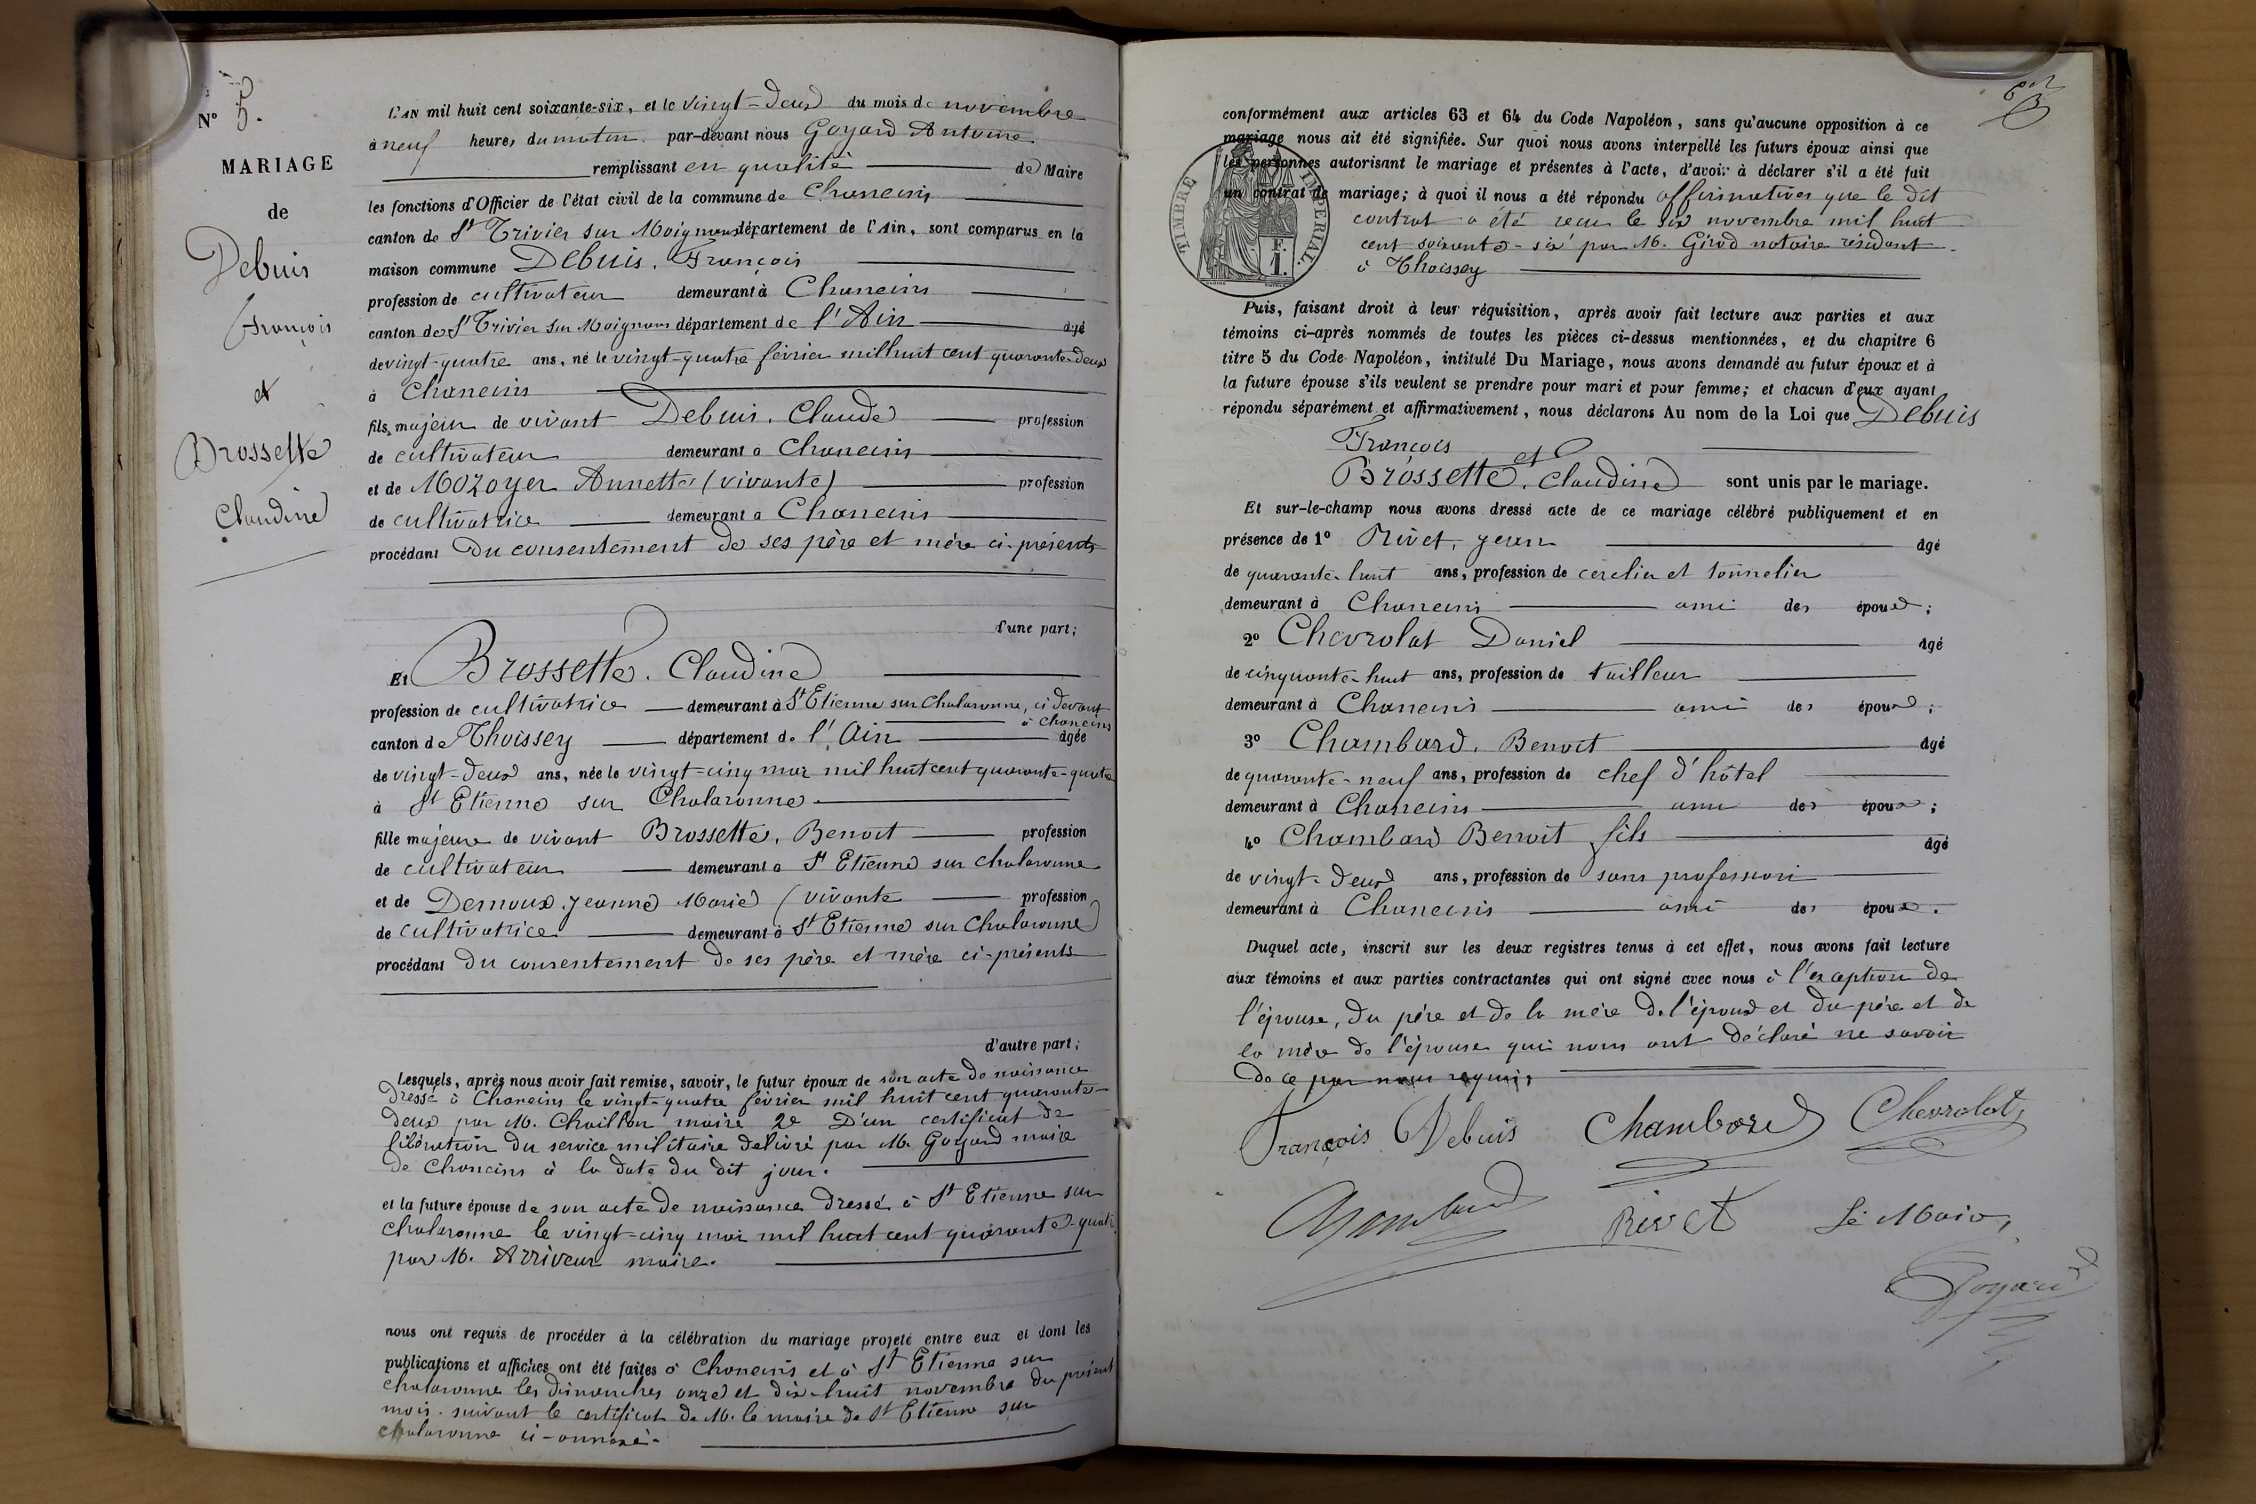 N° 5.
MARIAGE
de
Debuis
François
et
Brossette
Claudine
L'AN mil huit cent soixante-six, et le vingt-deux du mois de novembre
à neuf heures du matin par-devant nous Goyard Antoine
remplissant en qualité de Maire
les fonctions d'Officier de l'état civil de la commune de Chaneins
canton de St Trivier sur Moignans département de l'Ain, sont comparus en la
maison commune Debuis, François
profession de cultivateur demeurant à Chaneins
canton de St Trivier sur Moignans département de l'Ain âgé
de vingt-quatre ans, né le vingt-quatre février mil huit cent quarante-deux
à Chaneins
fils majeur de vivant Debuis, Claude profession
de cultivateur demeurant à Chaneins
et de Mozoyer Annette (vivante) profession
de cultivatrice demeurant à Chaneins
procédant du consentement de ses père et mère ci-présents
d'une part;
Et Brossette, Claudine
profession de cultivatrice demeurant à St Etienne sur Chalaronne, ci devant
à Chaneins
canton de Thoissey département de l'Ain âgée
de vingt-deux ans, née le vingt-cinq mai mil huit cent quarante-quatre
à St Etienne sur Chalaronne
fille majeure de vivant Brossette, Benoit profession
de cultivateur demeurant à St Etienne sur Chalaronne
et de Dernoux Jeanne Marie (vivante profession
de cultivatrice demeurant à St Etienne sur Chalaronne)
procédant du consentement de ses père et mère ci-présents
d'autre part;
Lesquels, après nous avoir fait remise, savoir, le futur époux de son acte de naissance
dressé à Chaneins le vingt-quatre février mil huit cent quarante-
deux par M. maire 2e D'un certificat de
libération du service militaire délivré par M. Goyard maire
de Chaneins à la date du dit jour.
et la future épouse de son acte de naissance dressé à St Etienne sur
Chalaronne le vingt-cinq mai mil huit cent quarante-quatre
par M. Arriveur maire.
nous ont requis de procéder à la célébration du mariage projeté entre eux et dont les
publications et affiches ont été faites à Chaneins et à St Etienne sur
Chalaronne les dimanches onze et dix-huit novembre du présent
mois suivant le certificat de M. le maire de St Etienne sur
Chalaronne ci-annexé.
conformément aux articles 63 et 64 du Code Napoléon, sans qu'aucune opposition à ce
mariage nous ait été signifiée. Sur quoi nous avons interpellé les futurs époux ainsi que
les personnes autorisant le mariage et présentes à l'acte, d'avoir à déclarer s'il a été fait
un contrat de mariage; à quoi il nous a été répondu affirmative que le dit
contrat a été reçu le six novembre mil huit
cent soixante-six par M. Girod notaire résidant
à Thoissey
TIMBRE IMPERIAL.
F.
1.
Puis, faisant droit à leur réquisition, après avoir fait lecture aux parties et aux
témoins ci-après nommés de toutes les pièces ci-dessus mentionnées, et du chapitre 6
titre 5 du Code Napoléon, intitulé Du Mariage, nous avons demandé au futur époux et à
la future épouse s'ils veulent se prendre pour mari et pour femme; et chacun d'eux ayant
répondu séparément et affirmativement, nous déclarons Au nom de la Loi que Debuis
François
et
Brossette, Claudine sont unis par le mariage.
Et sur-le-champ nous avons dressé acte de ce mariage célébré publiquement et en
présence de 1° Rivet, Jean âgé
de quarante-huit ans, profession de cerclier et tonnelier
demeurant à Chaneins ami des époux;
2° Chevrolat Daniel âgé
de cinquante-huit ans, profession de tailleur
demeurant à Chaneins ami des époux;
3° Chambard, Benoit âgé
de quarante-neuf ans, profession de chef d'hôtel
demeurant à Chaneins ami des époux;
4° Chambard Benoit fils âgé
de vingt-deux ans, profession de sans profession
demeurant à Chaneins ami des époux.
Duquel acte, inscrit sur les deux registres tenus à cet effet, nous avons fait lecture
aux témoins et aux parties contractantes qui ont signé avec nous à l'exception de
l'épouse, du père et de la mère de l'époux et du père et de
la mère de l'épouse qui nous ont déclaré ne savoir
de ce par nous requis,
François Debuis Chambard Chevrolat
Chambard Rivet Le Maire,
Goyard